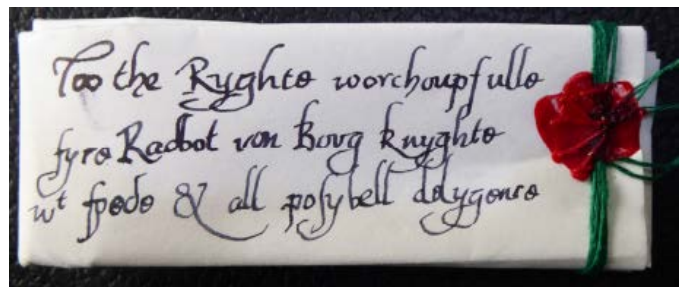 Too the Ryghte worchoupfulle
ſyre Radbot von Borg knyghte
wᵗ ſpede & all poſybell delygence